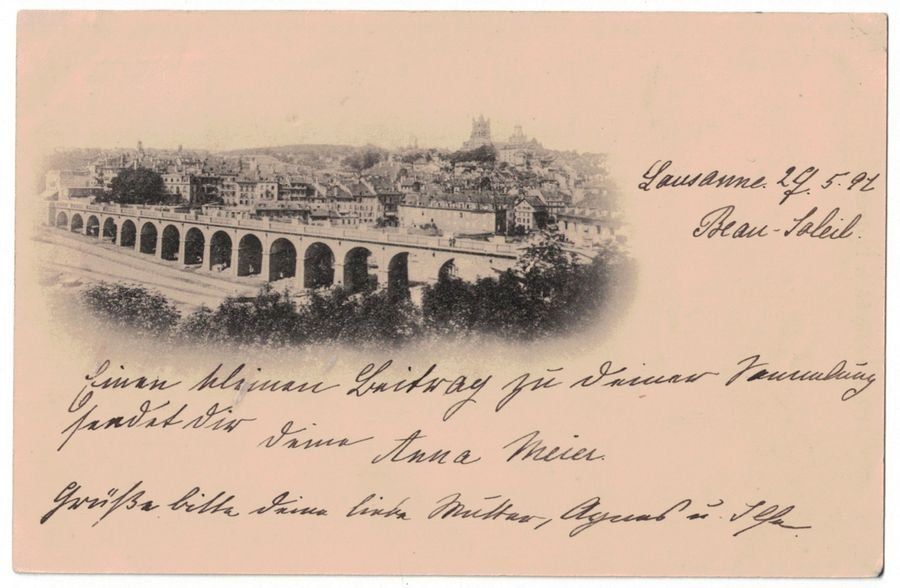 Lausanne. 27. 5. 97
Beau-Soleil.
Einen kleinen Beitrag zu deiner Sammlung
sendet dir
deine
Anna Meier.
Grüße bitte deine liebe Mutter, Agnes u. Ilse